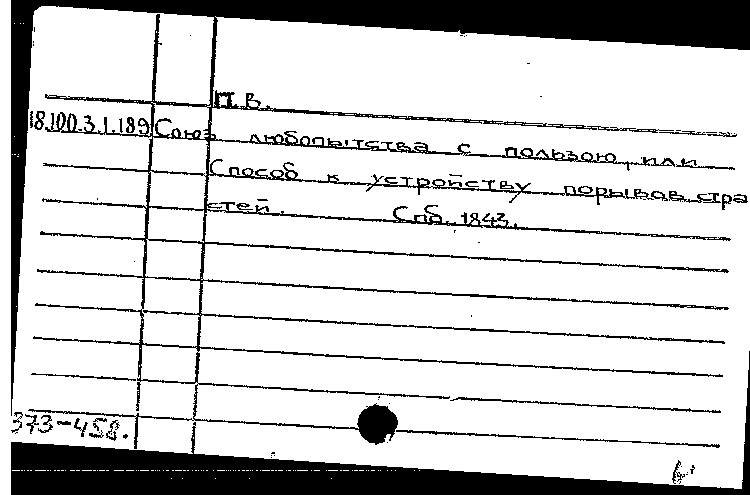 П. В.
18.100.3.1.189 Союз любопытства с пользою, или
Способ к устройству порывов стра
стей. Спб. 1843.
373-458.